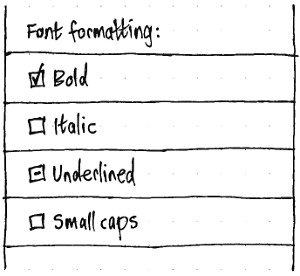 Font formatting:
Bold
Italic
Underlined
Small caps